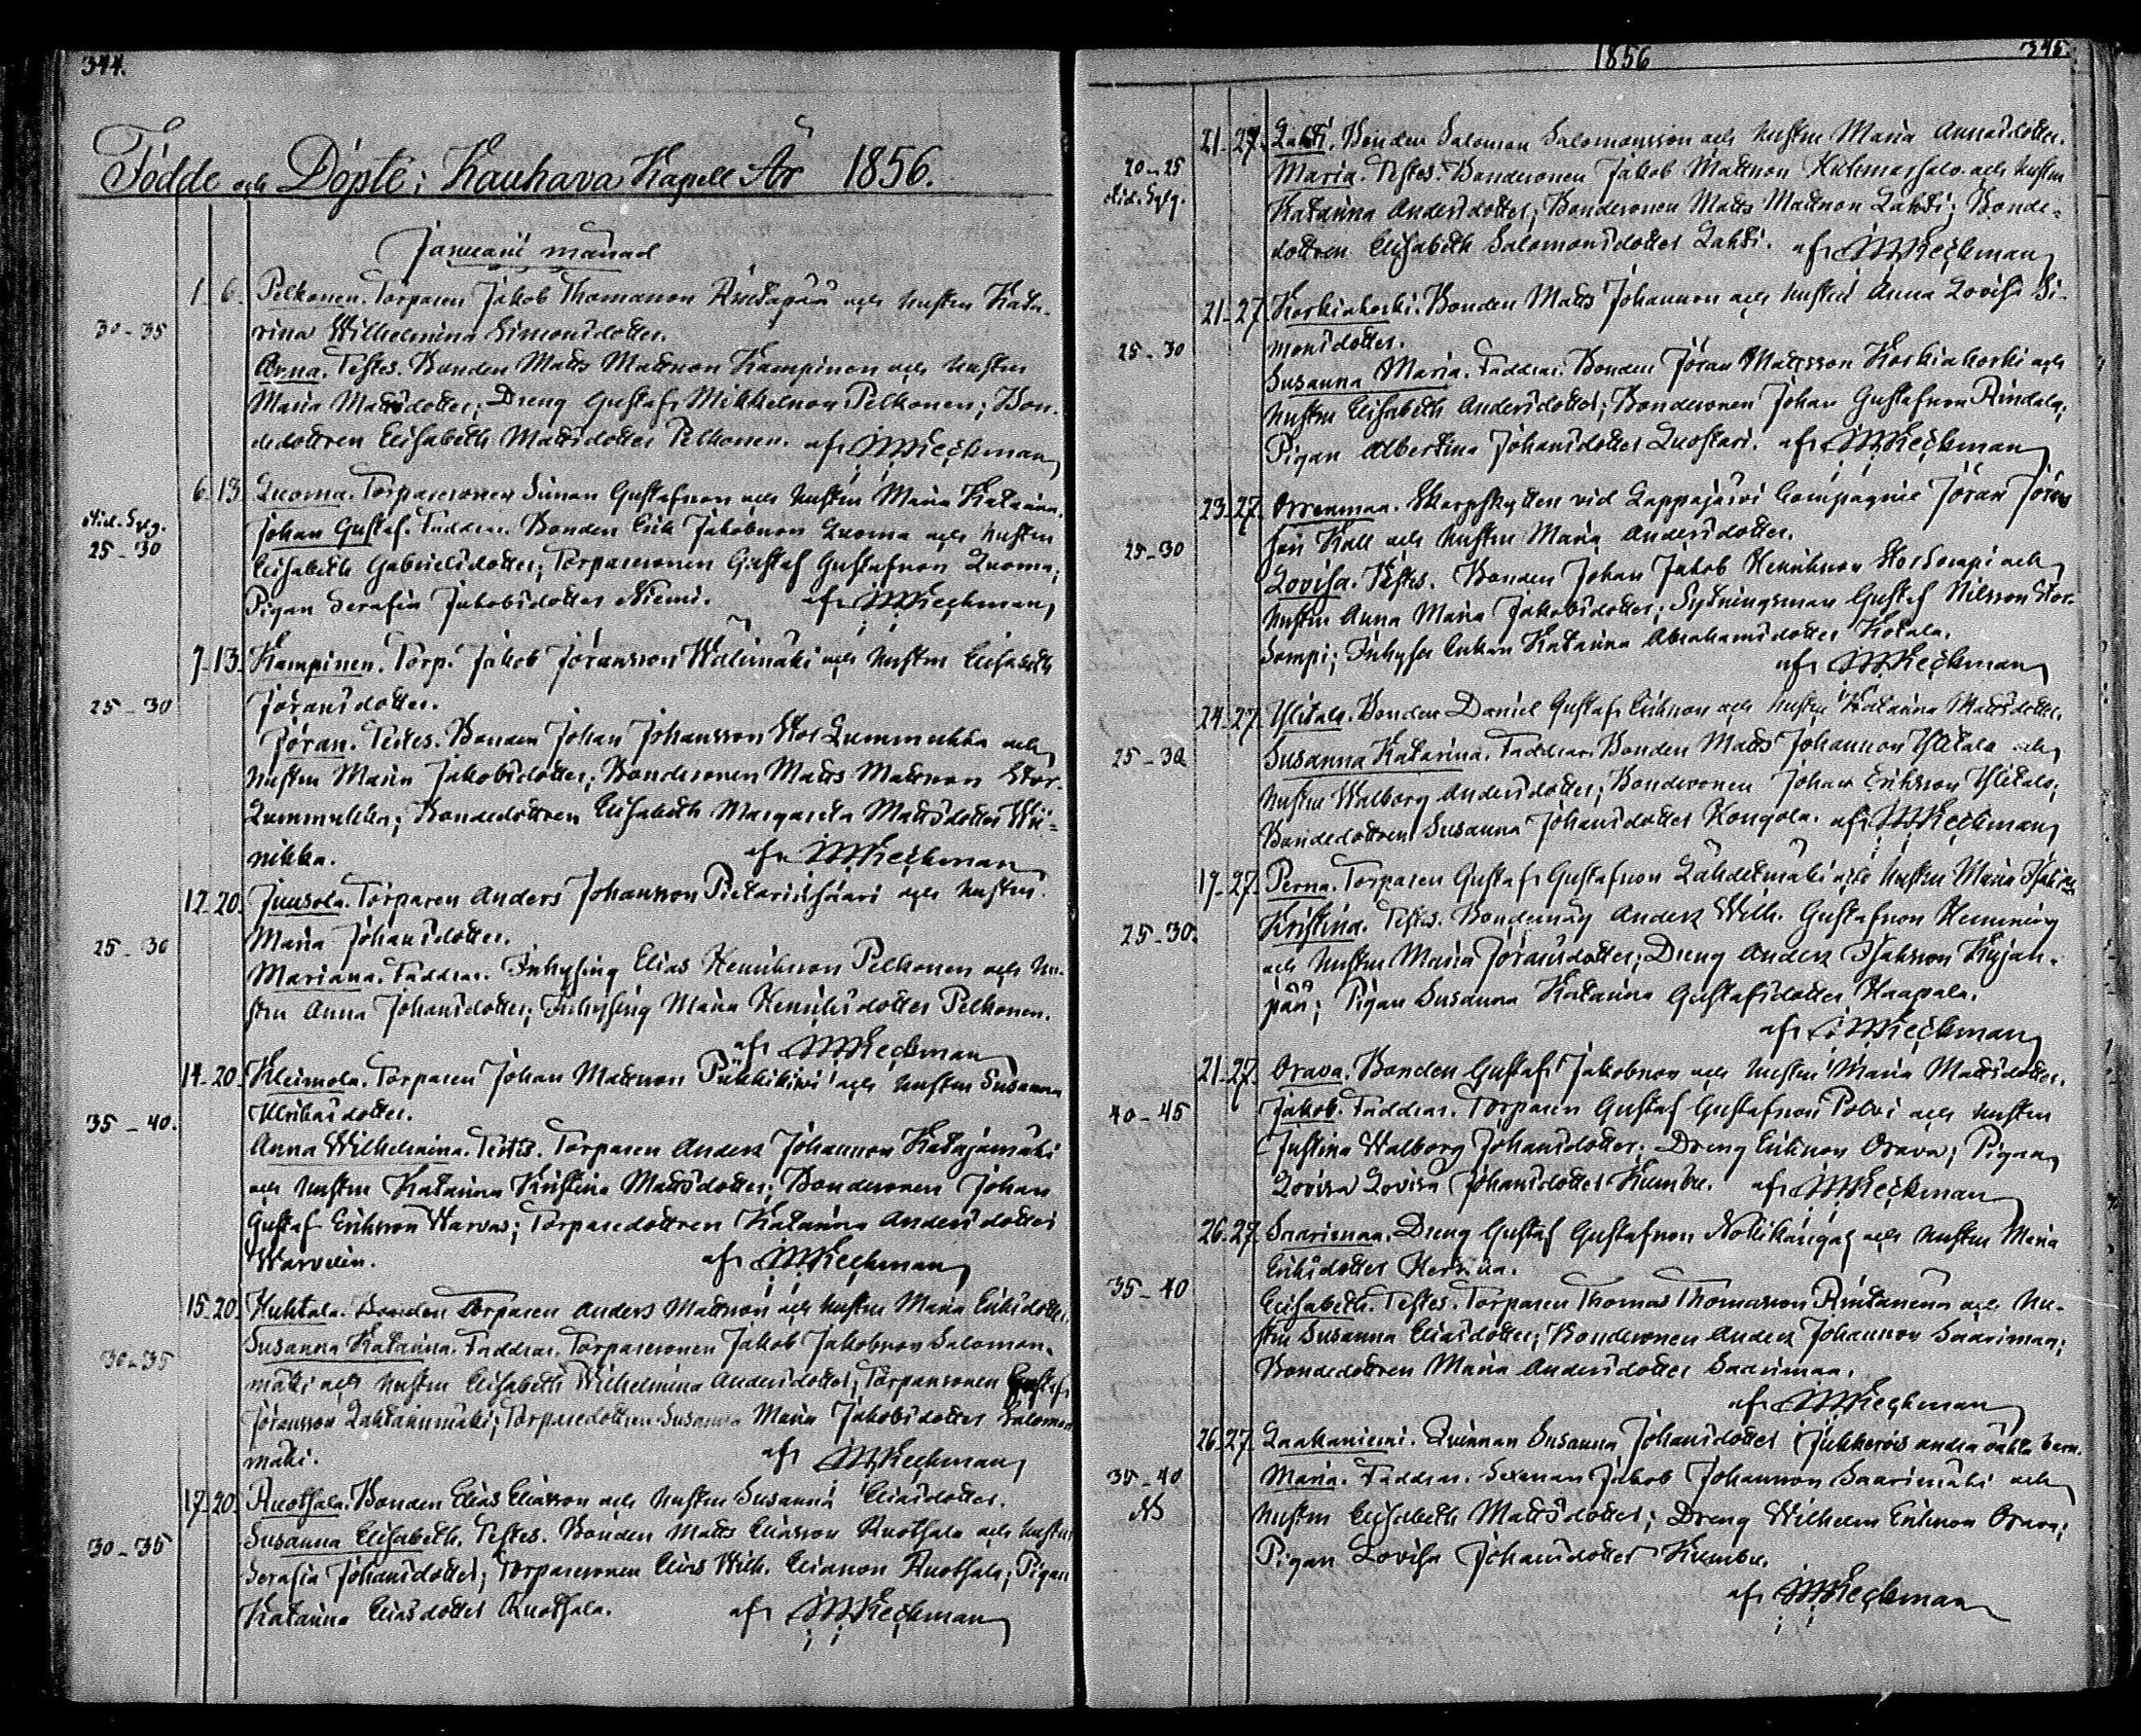 344.
Födde och Döpte i Kauhava Kapell År 1856.
Januarii månad
1. 6. Pelkonen. Torparen Jakob Thomasson Äijtapää och hustru Kata-
30-35 rina Wilhelmina Simonsdotter.
Anna. Testes. Bonden Matts Mattsson Kampinen och hustru
Maria Mattsdotter; Dreng Gustaf Mikkelsson Pelkonen; Bon-
dedottren Elisabeth Mattsdotter Pelkonen. af MWieckman
6. 13. Luoma. Torparesonen Simon Gustafsson och hustru Maria Katarina.
Johan Gustaf. Faddrar. Bonden Erik Jakobsson Luoma och hustru
25-30 Elisabeth Gabrielsdotter; Torparesonen Gustaf Gustafsson Luoma;
Pigan Serafia Jakobsdotter Niemi. af MWieckman
7-13. Kampinen. Torp. Jakob Jöransson Wälimäki och hustru Elisabeth
25-30 Jöransdotter.
Jöran. Testes. Bonden Johan Johansson Stor Lummukka och
hustru Maria Jakobsdotter; Bondesonen Matts Mattsson Stor-
Lummukka; Bondedottren Elisabeth Margareta Mattsdotter Wii-
nikka. af MWieckman
12-20. Juusola. Torparen Anders Johansson Pietarinsaari och hustru
25-30 Maria Johansdotter.
Mariana. Faddrar. Inhysing Elias Henriksson Pelkonen och hu-
stru Anna Johansdotter; Inhysing Maria Henriksdotter Pelkonen.
af MWieckman
14-20. Kleimola. Torparen Johan Mattsson Pukkikivi och hustru Susanna
35-40. Ulrikasdotter.
Anna Wilhelmina. Testes. Torparen Anders Johansson Katajamäki
och hustru Katarina Kristina Mattsdotter; Bondesonen Johan
Gustaf Eriksson Warvas; Torparedottren Katarina Andersdotter
Warvelin. af MWieckman
15-20. Huhtala. Torparen Anders Mattsson och hustru Maria Eriksdotter.
Susanna Katarina. Faddrar. Torparesonen Jakob Jakobsson Salomon-
30-35 mäki och hustru Elisabeth Wilhelmina Andersdotter; Torparesonen Gustaf
Jöransson; Torparedottren Susanna Maria Jakobsdotter Salomon
mäki. af MWieckman
17-20. Ruotsala. Bonden Elias Eliasson och hustru Susanna Eliasdotter.
Susanna Elisabeth. Testes. Bonden Matts Eliasson Ruotsala och hustru
30-35 Serafia Johansdotter; Torparesonen Elias Wilh. Eliasson Ruotsala; Pigan
Katarina Eliasdotter Ruotsala. af MWieckman
1856 345.
21-27. Lahti. Bonden Salomon Salomonsson och hustru Maria Annasdotter.
20-25 Maria. Testes. Bondesonen Jakob Mattsson och hustru
Katarina Andersdotter; Bondesonen Matts Mattsson Lahti; Bonde-
dottren Elisabeth Salomonsdotter Lahti. af MWieckman
21-27. Korkiakoski. Bonden Matts Johansson och hustru Anna Lovisa Si-
25-30 monsdotter.
Susanna Maria. Faddrar. Bonden Jöran Mattsson Korkiakoski och
hustru Elisabeth Andersdotter; Bondesonen Johan Gustafsson Rindala;
Pigan Albertina Johansdotter Luostari. af MWieckman
23-27. Orrenmaa. Skarpskytten vid Lappajärvi Compagnie Jöran Jörans
25-30 son Kall och hustru Maria Andersdotter.
Lovisa. Testes. Bonden Johan Jakob Henriksson Storsompi och
hustru Anna Maria Jakobsdotter; Sytningsman Gustaf Nilsson Stor-
Sompi; Inhyses Enkan Katarina Abrahamsdotter Kotala.
af MWieckman
24-27. Ylitalo. Bonden Daniel Gustaf Eriksson och hustru Katarina Mattsdotter.
25-30 Susanna Katarina. Faddrar. Bonden Matts Johansson Ylitalo och
hustru Walborg Andersdotter; Bondesonen Johan Eriksson Ylitalo;
Bondedottren Susanna Johansdotter Kongola. af MWieckman
19-27. Perna. Torparen Gustaf Gustafsson Lähdetmäki och hustru Maria
25-30. Kristina. Testes. Bondemåg Anders Wilh. Gustafsson Hemming
och hustru Maria Jöransdotter; Dreng Anders Isaksson Kujan-
pää; Pigan Susanna Katarina Gustafsdotter Haapala.
af MWieckman
21-27. Orava. Bonden Gustaf Jakobsson och hustru Maria Mattsdotter.
40-45 Jakob. Faddrar. Torparen Gustaf Gustafsson Polvi och hustru
Justina Walborg Johansdotter; Dreng Eriksson Orava; Pigan
Lovisa Lovisa Johansdotter Kumbu. af MWieckman
26-27. Saarimaa. Dreng Gustaf Gustafsson Nokikangas och hustru Maria
35-40 Eriksdotter.
Elisabeth. Testes. Torparen Thomas Thomasson Rintanena och hu-
stru Susanna Eliasdotter; Bondesonen Anders Johansson Saarimaa;
Bondedottren Maria Andersdotter Saarimaa.
af MWieckman
26-27. Laakaniemi. Qvinnan Susanna Johansdotter Jukkerois andra oäkta barn.
35-40 Maria. Faddrar. Sexman Jakob Johansson Saarimäki och
hustru Elisabeth Mattsdotter; Dreng Wilhelm Eriksson Orava;
Pigan Lovisa Johansdotter Kumbu.
af MWieckman